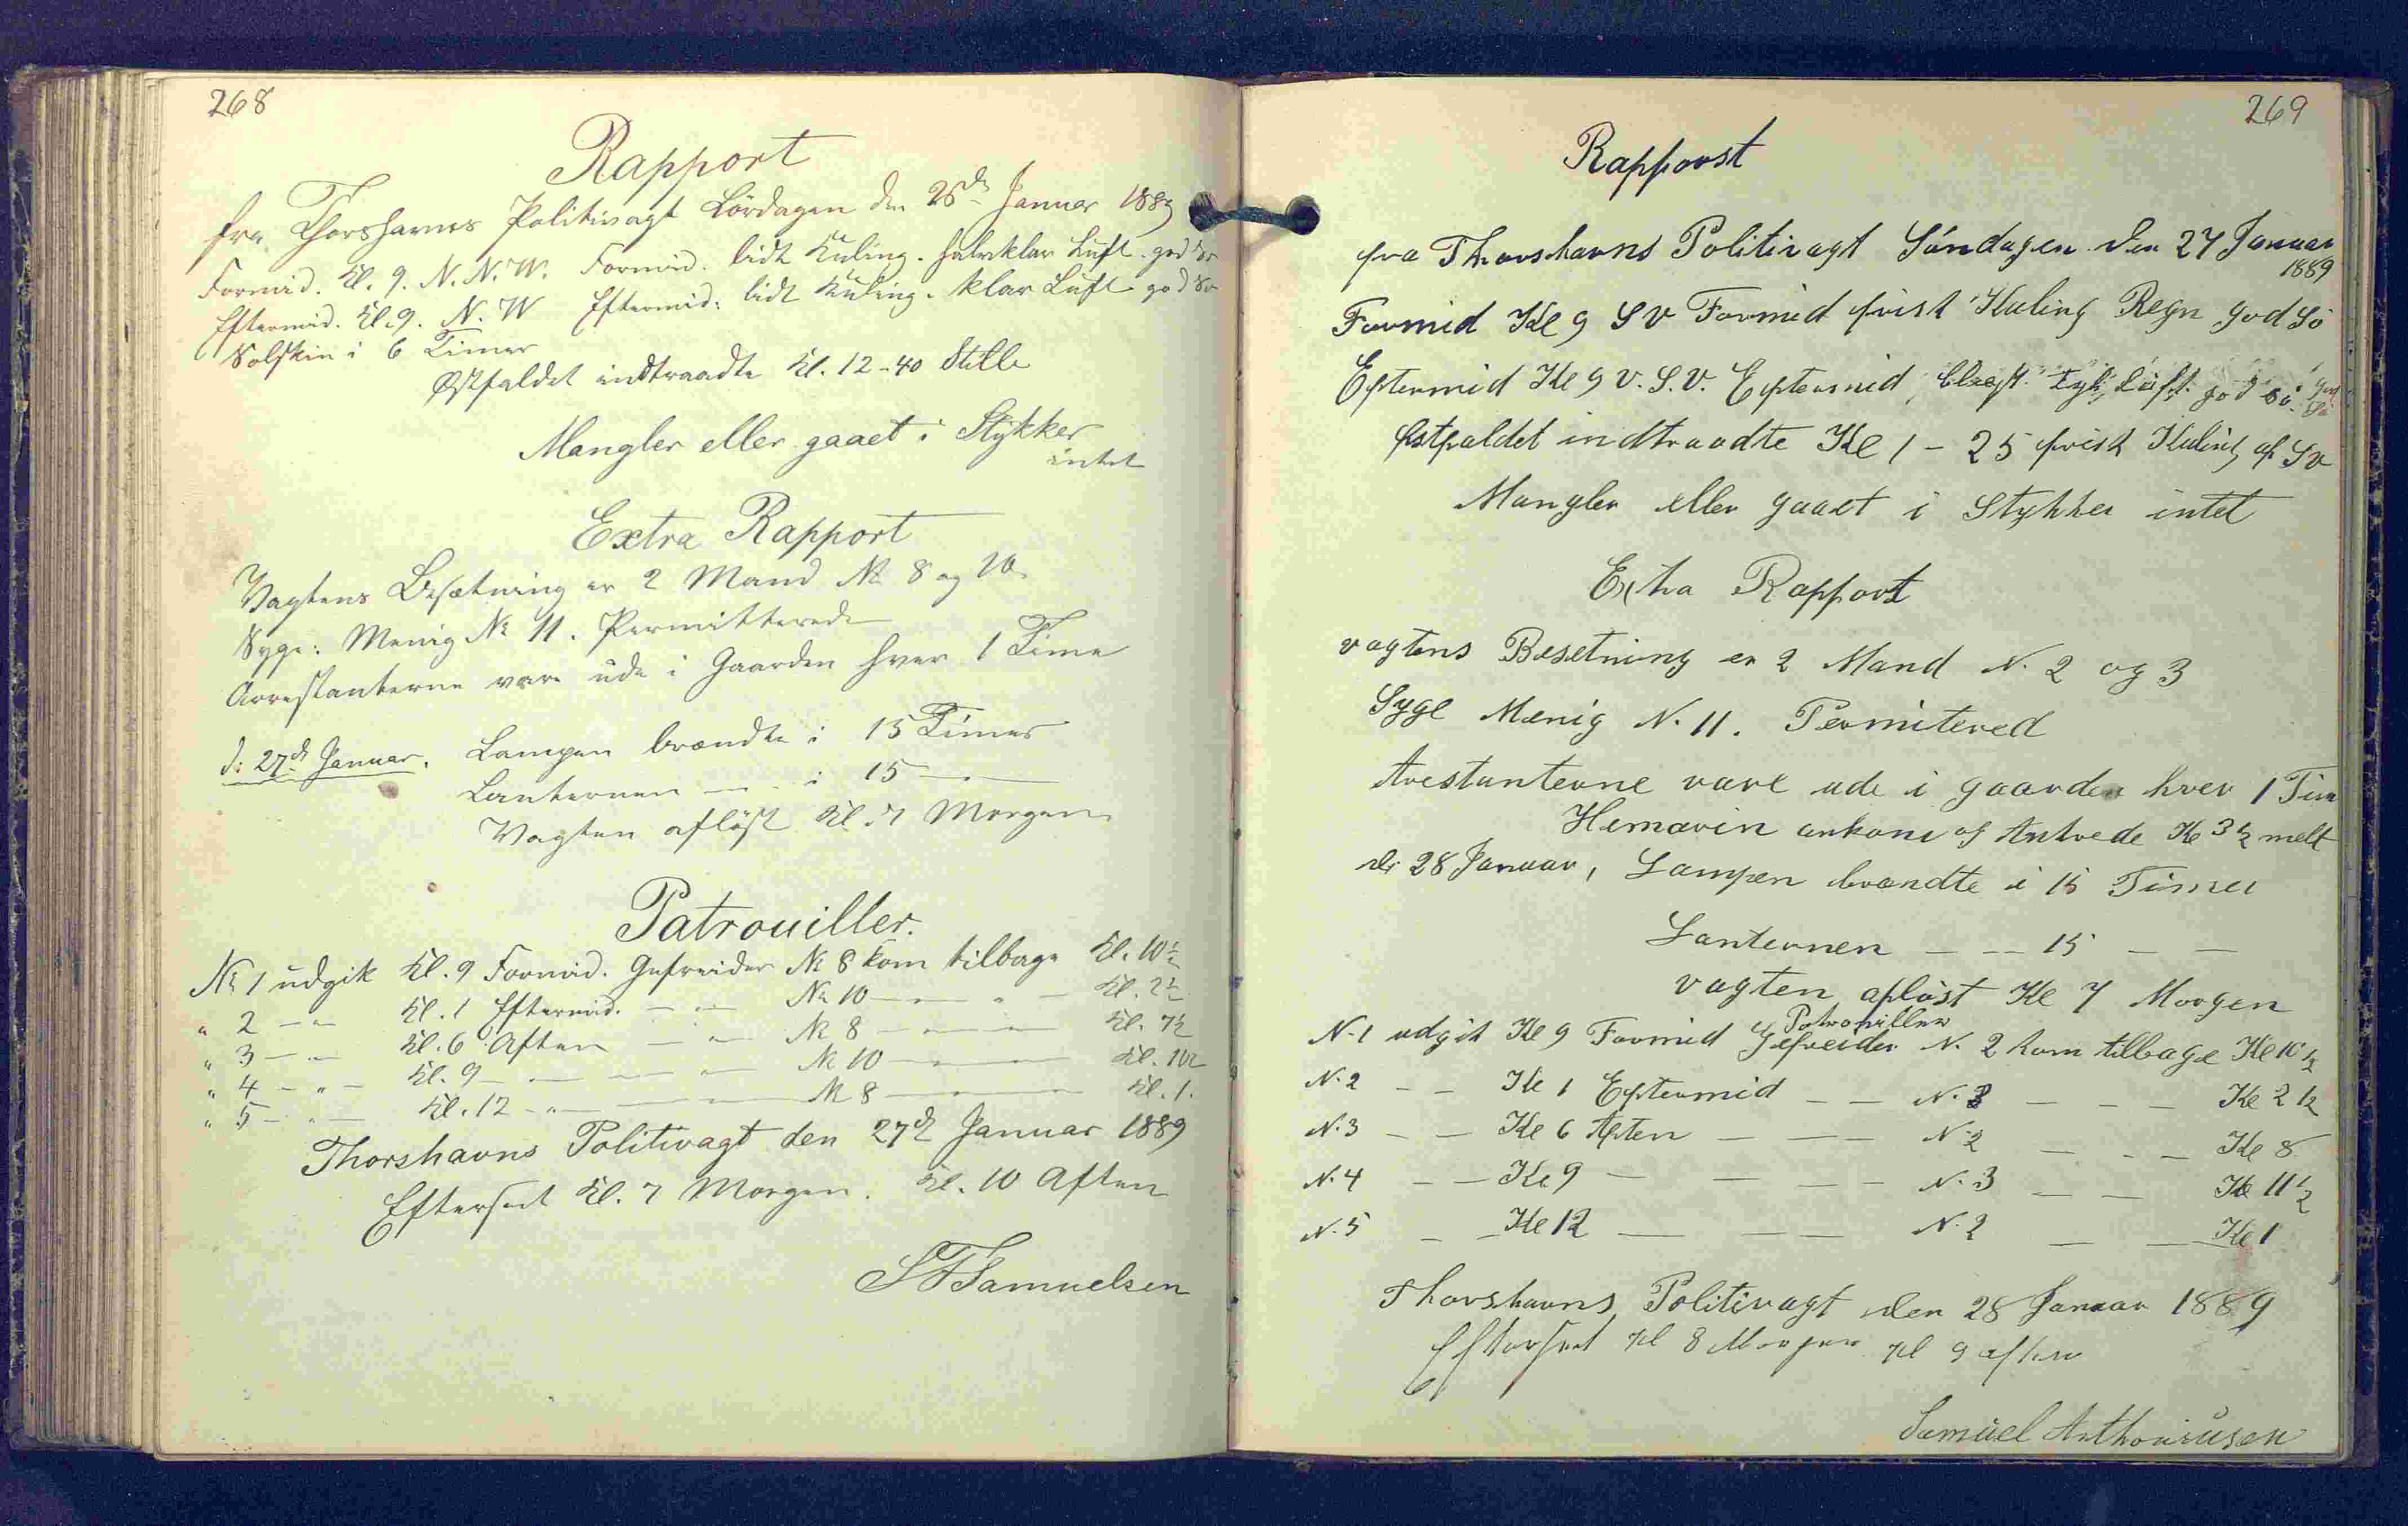 268
Rapport
fra Thorshavns Politivagt Lördagen den 26de Januar 1889
Formid. Kl. 9. N.N.W. Formid. lidt Kuling. halvklar Luft. god Sö
Eftermid. Kl. 9. N.W Eftermid: lidt Kuling. klar Luft god Sö
Solskin i 6 Timer
Østfaldet indtraadte Kl. 12-40 Stille
Mangler eller gaaet i Stykker
intet
Extra Rapport
Vagtens Besætning er 2 Mand No 8 og 10
Syge: Menig No 11. Permitterede
Arrestanterne vare ude i Gaarden hver 1 Time
d: 27de Januar. Lampen brændte i 15 Timer
Lanternen — " — i 15 — " —
Vagten aflöst Kl. 7 Morgen
Patrouiller.
No 1 udgik Kl. 9 Formid. Gefreider No 8 kom tilbage Kl. 10½
" 2 — " — Kl. 1 Eftermid. — " — No 10 — " — " — Kl. 2½
" 3 — " — Kl. 6 Aften — " — No 8 — " — " — Kl. 7½
" 4 — " — Kl. 9 — " — " — No 10 — " — " — Kl. 10½
" 5 — " — Kl. 12 — " — " — No 8 — " — " — Kl. 1.
Thorshavns Politivagt den 27de Januar 1889
Efterseet Kl. 7 Morgen. Kl. 10 Aften
Samuelsen
269
Rapporst
fra Thorshavns Politivagt Söndagen den 27 Januar
1889
Formid Kl 9 S V Formid frist Kuling Regn god Sö
Eftermid Kl 9 V. S. V. Eftermid, Tyk Luft god Sö god Sö
Østfaldet indtraadte Kl 1 - 25 frisk Kuling af S V
Mangler eller gaaet i Stykker intet
Extra Rapport
vagtens Besetning er 2 Mand N. 2 og 3
Syge Menig N. 11. Permitered
Arestanterne vare ude i gaarden hver 1 Time
ankom Kl 3½
de 28 Januar, Lampen brændte i 15 Timer
Lanternen — — 15 — —
vagten aflöst Kl 7 Morgen
Patrouiller
N. 1 udgik Kl 9 Formid Gefreider N. 2 kom tilbage Kl 10½
N. 2 — — Kl 1 Eftermid — — N. 3 — — — Kl 2½
N. 3 — — Kl 6 Aften — — — N. 2 — — — Kl 8
N. 4 — — Kl 9 — — — — N. 3 — — Kl 11½
N. 5 — — Kl 12 — — — N. 2 — — Kl 1
Thorshavns Politivagt den 28 Januar 1889
Efterseet Kl 8 Morgen Kl 9 aften
Samuel